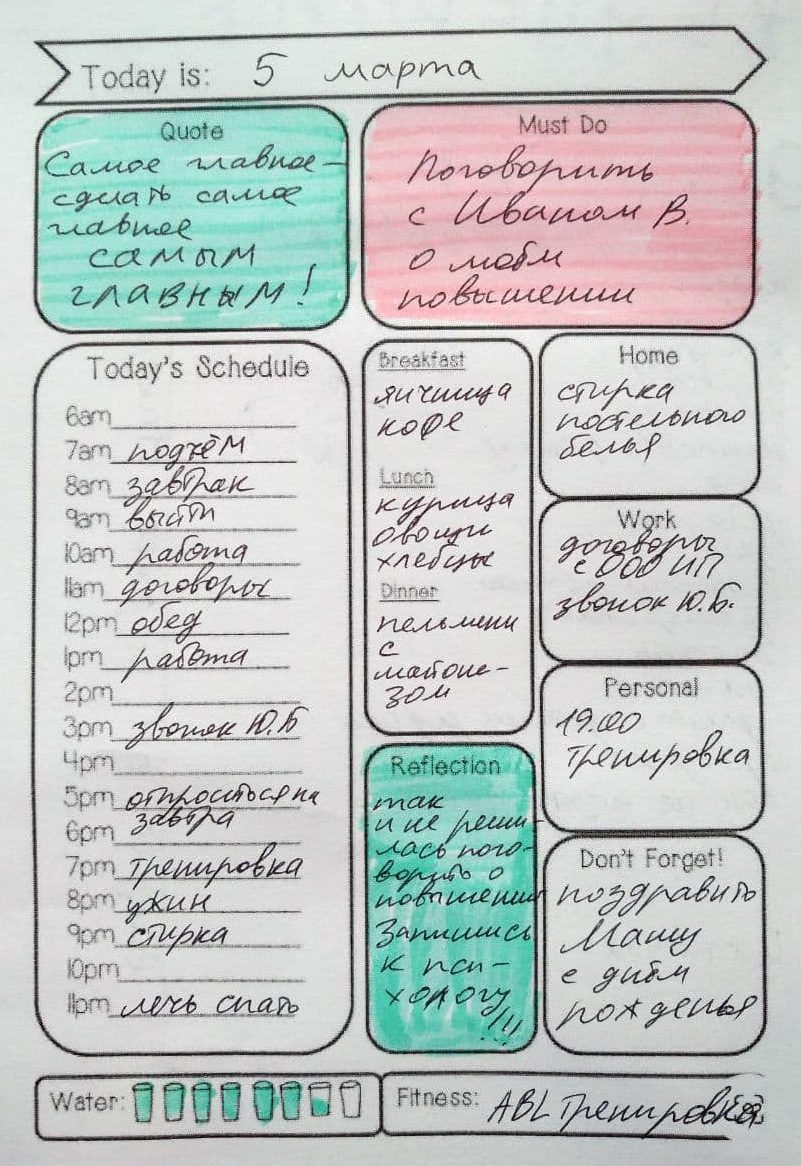 Today is: 5 марта
Quote
Самое главное —
сделать самое
главное
самым
главным!
Must Do
Поговорить
с Иваном В.
о моём
повышении
Today's Schedule
6am
7am подъём
8am завтрак
9am выйти
10am работа
11am договоры
12pm обед
1pm работа
2pm
3pm звонок Ю.Б
4pm
5pm отпроситься на
завтра
6pm
7pm тренировка
8pm ужин
9pm стирка
10pm
11pm лечь спать
Breakfast
яичница
кофе
Lunch
курица
овощи
хлебцы
Dinner
пельмени
с
майоне-
зом
Home
стирка
постельного
белья
Work
договоры
с ООО ИП
звонок Ю.Б.
Personal
19.00
тренировка
Reflection
так
и не реши-
лась пого-
ворить о
повышении
Запишись
к пси-
хологу
!!!
Don't Forget!
поздравить
Машу
с днём
рожденья
Water:
Fitness: ABL тренировка